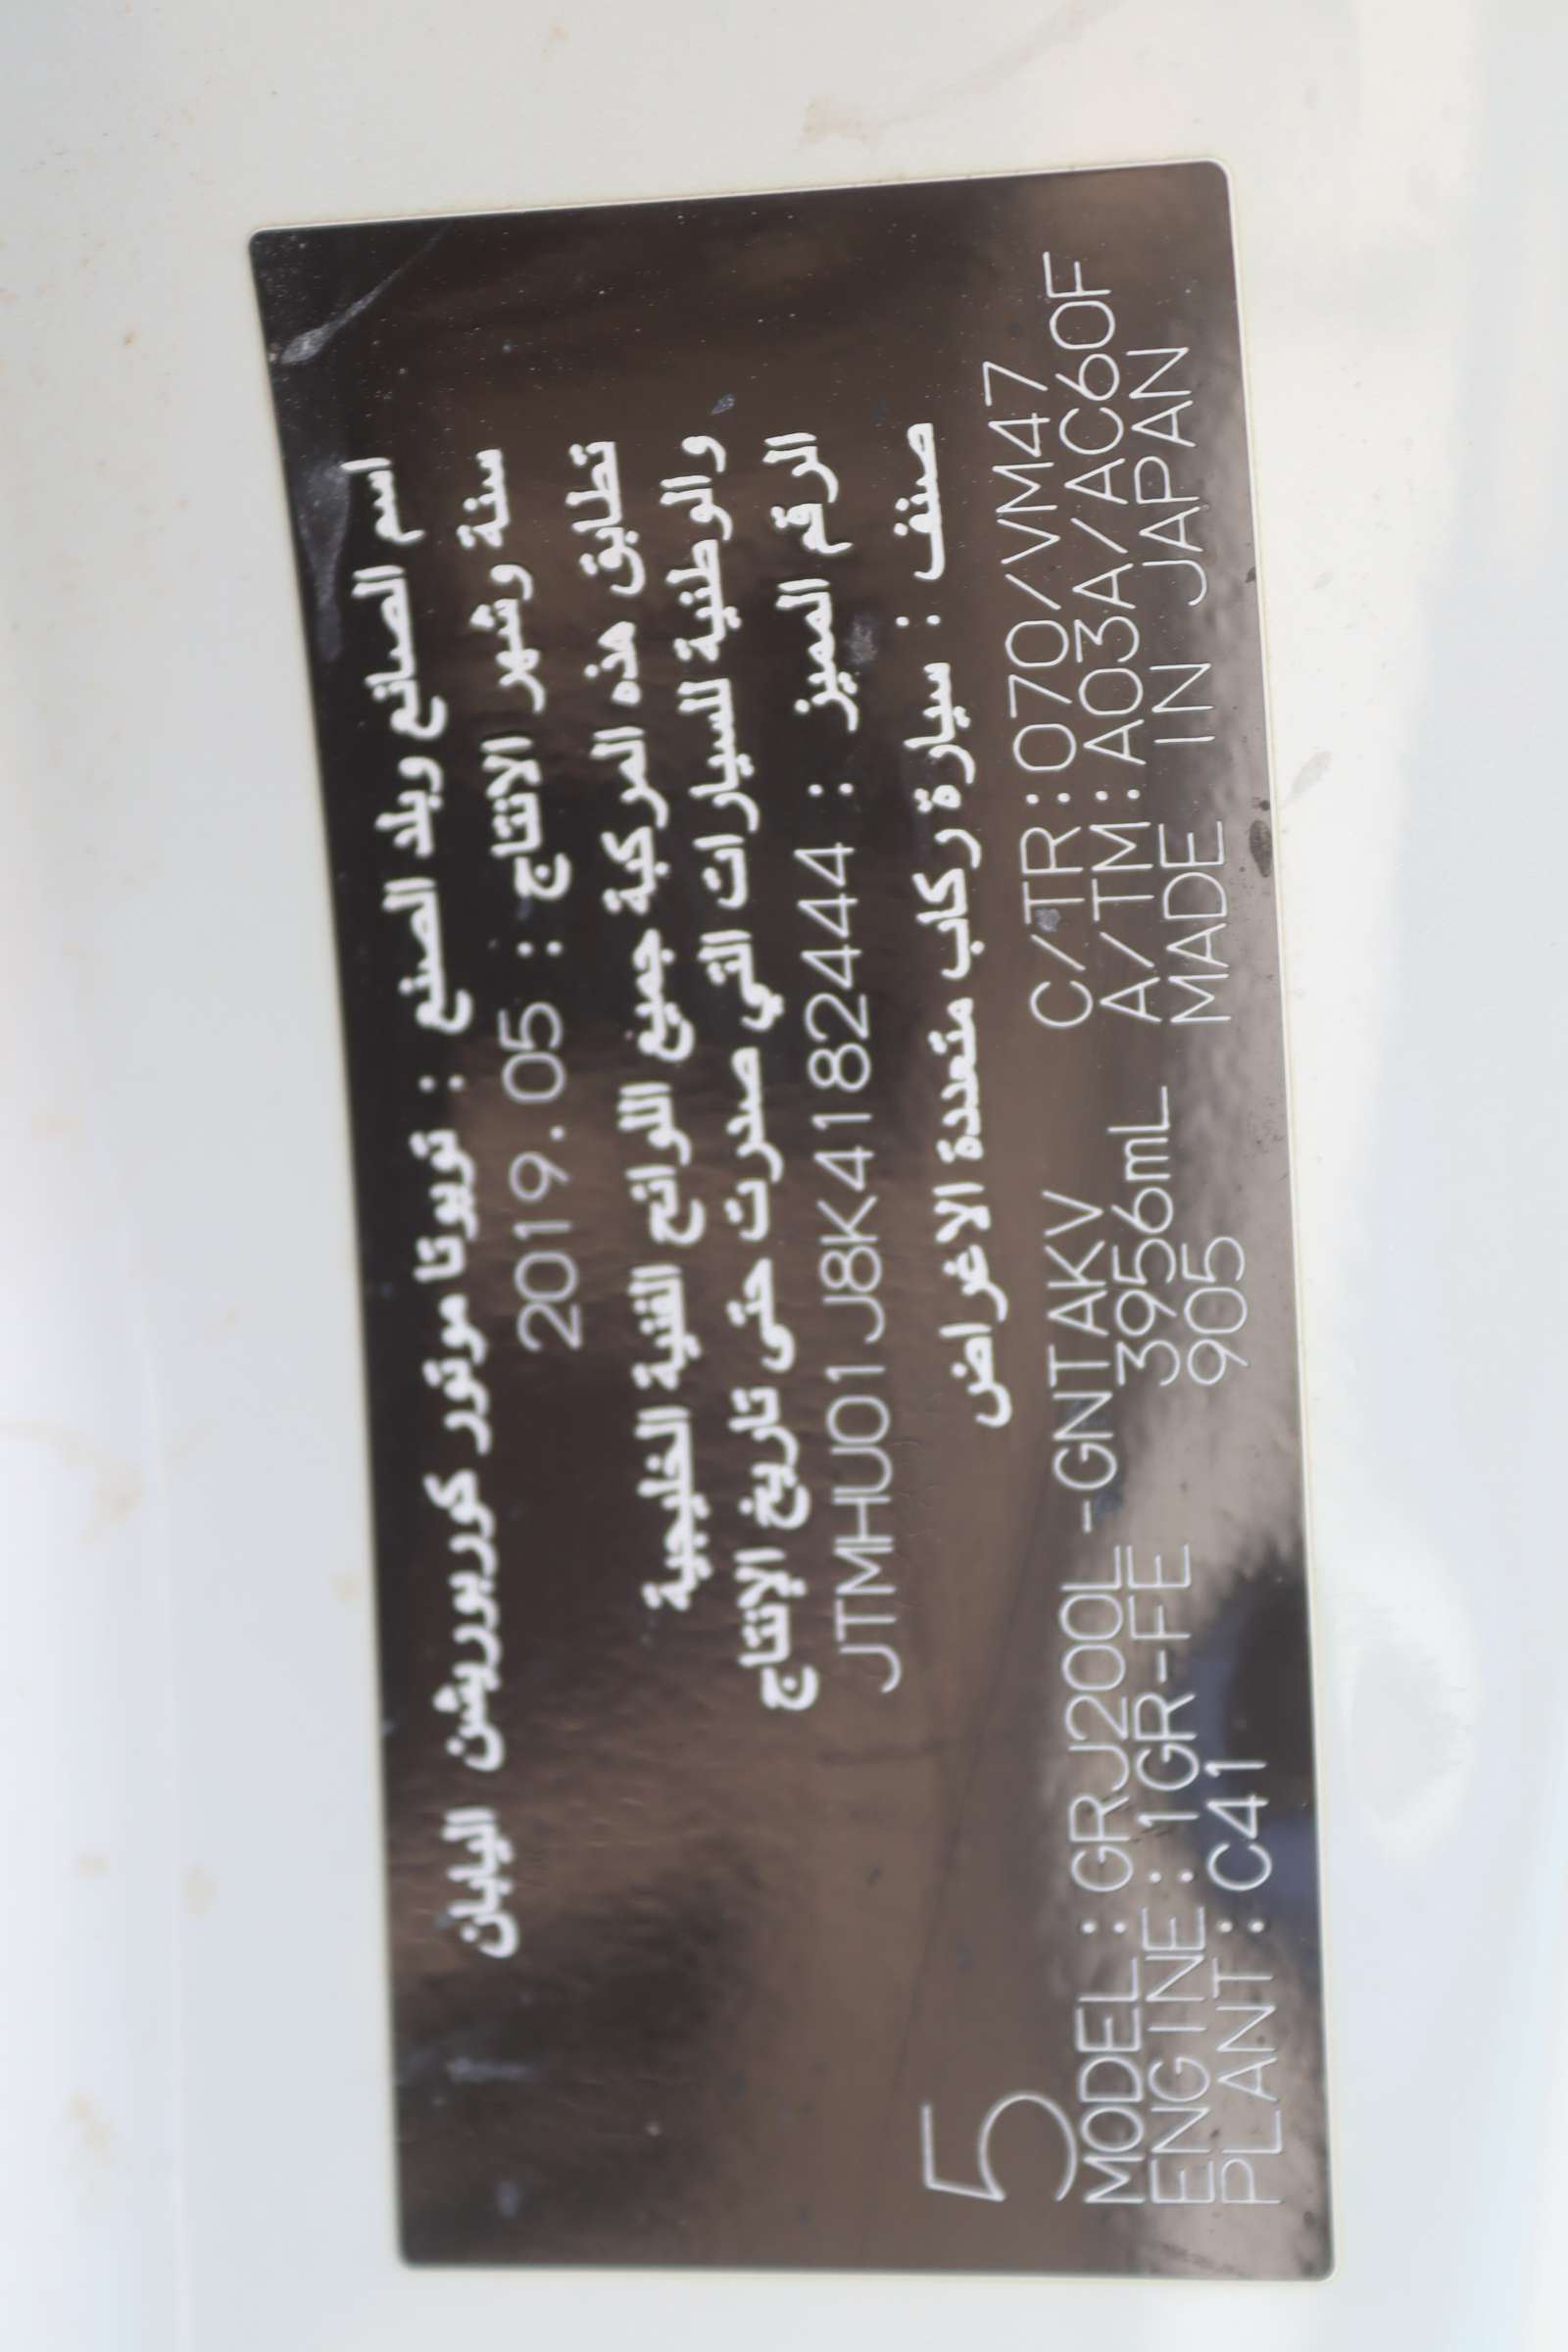 اسم الصانع وبلد الصنع : تويوتا موتور كوربوريشن اليابان
سنة وشهر الانتاج : 2019.05
تطابق هذه المركبة جميع اللوائح الفنية الخليجية
والوطنية للسيارات التي صدرت حتى تاريخ الإنتاج
الرقم المميز : JTMHU01J8K4182444
صنف : سيارة ركاب متعددة الاغراض
5
MODEL:GRJ200L-GNTAKV C/TR:070/VM47
ENGINE:1GR-FE 3956mL A/TM:A03A/AC60F
PLANT:C41 905 MADE IN JAPAN